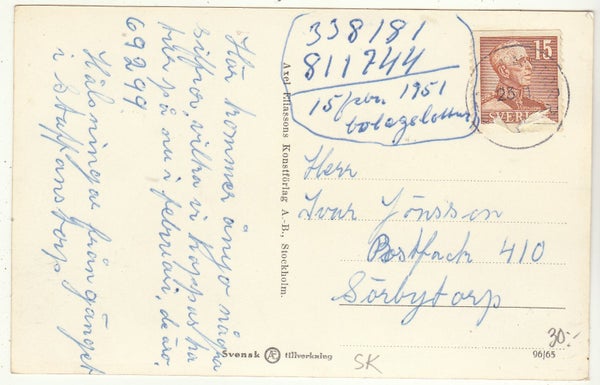 Här kommer ännu några
siffror, vilka vi hoppas ha
tur på nu i februari, de äro.
69299.
Hälsningar från gänget
i Staffanstorp
338181
811744
15 febr 1951
Axel Eliassons Konstförlag A.-B., Stockholm.
15
SVERI
Herr
Ivar Jönsson
Postfack 410
Sörbytorp
Svensk AE tillverkning
SK
30:-
96/65